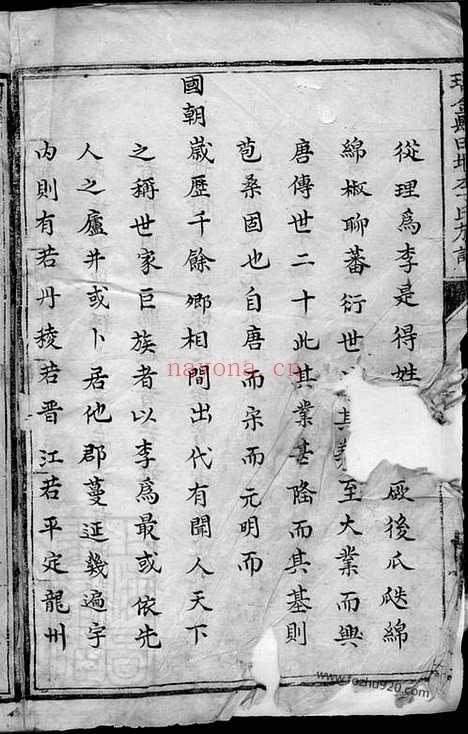 從理為李是得姓厥後瓜瓞綿
綿椒聊蕃衍世其至大業而興
唐傳世二十此其業甚隆而其基則
苞桑固也自唐而宋而元明而
國朝歲歷千餘鄉相間出代有聞人天下
之稱世家巨族者以李為最或依先
人之廬井或卜居他郡蔓延幾遍宇
內則有若丹稜若晉江若平定龍州
nayona.cn
www.fozhu920.com